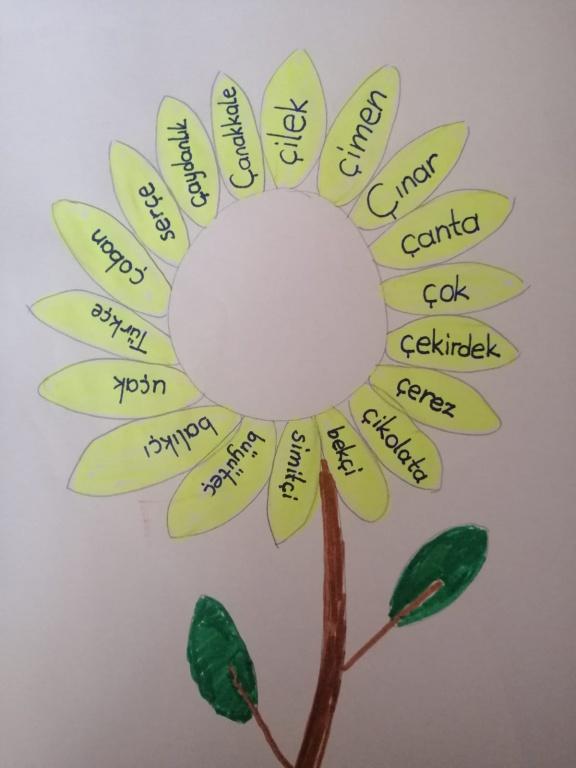 çilek
çimen
Çınar
çanta
çok
çekirdek
çerez
çikolata
bekçi
simitçi
büyüteç
balıkçı
uçak
Türkçe
çoban
serçe
çaydanlık
Çanakkale